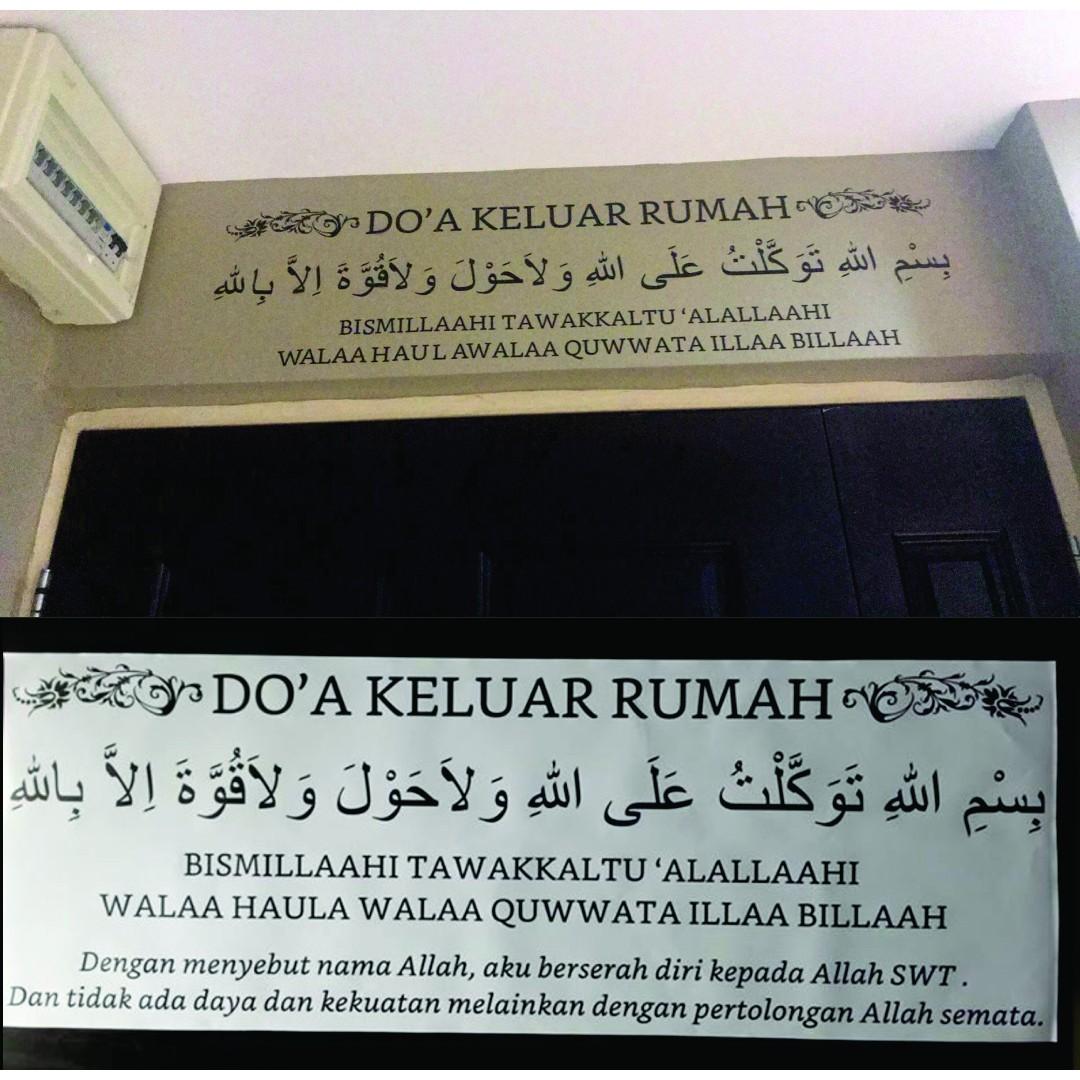 DO'A KELUAR RUMAH
بِسْمِ اللهِ تَوَكَّلْتُ عَلَى اللهِ وَلاَحَوْلَ وَلاَقُوَّةَ اِلاَّ بِاللهِ
BISMILLAAHI TAWAKKALTU ‘ALALLAAHI
WALAA HAUL AWALAA QUWWATA ILLAA BILLAAH
DO'A KELUAR RUMAH
بِسْمِ اللهِ تَوَكَّلْتُ عَلَى اللهِ وَلاَحَوْلَ وَلاَقُوَّةَ اِلاَّ بِاللهِ
BISMILLAAHI TAWAKKALTU ‘ALALLAAHI
WALAA HAULA WALAA QUWWATA ILLAA BILLAAH
Dengan menyebut nama Allah, aku berserah diri kepada Allah SWT .
Dan tidak ada daya dan kekuatan melainkan dengan pertolongan Allah semata.